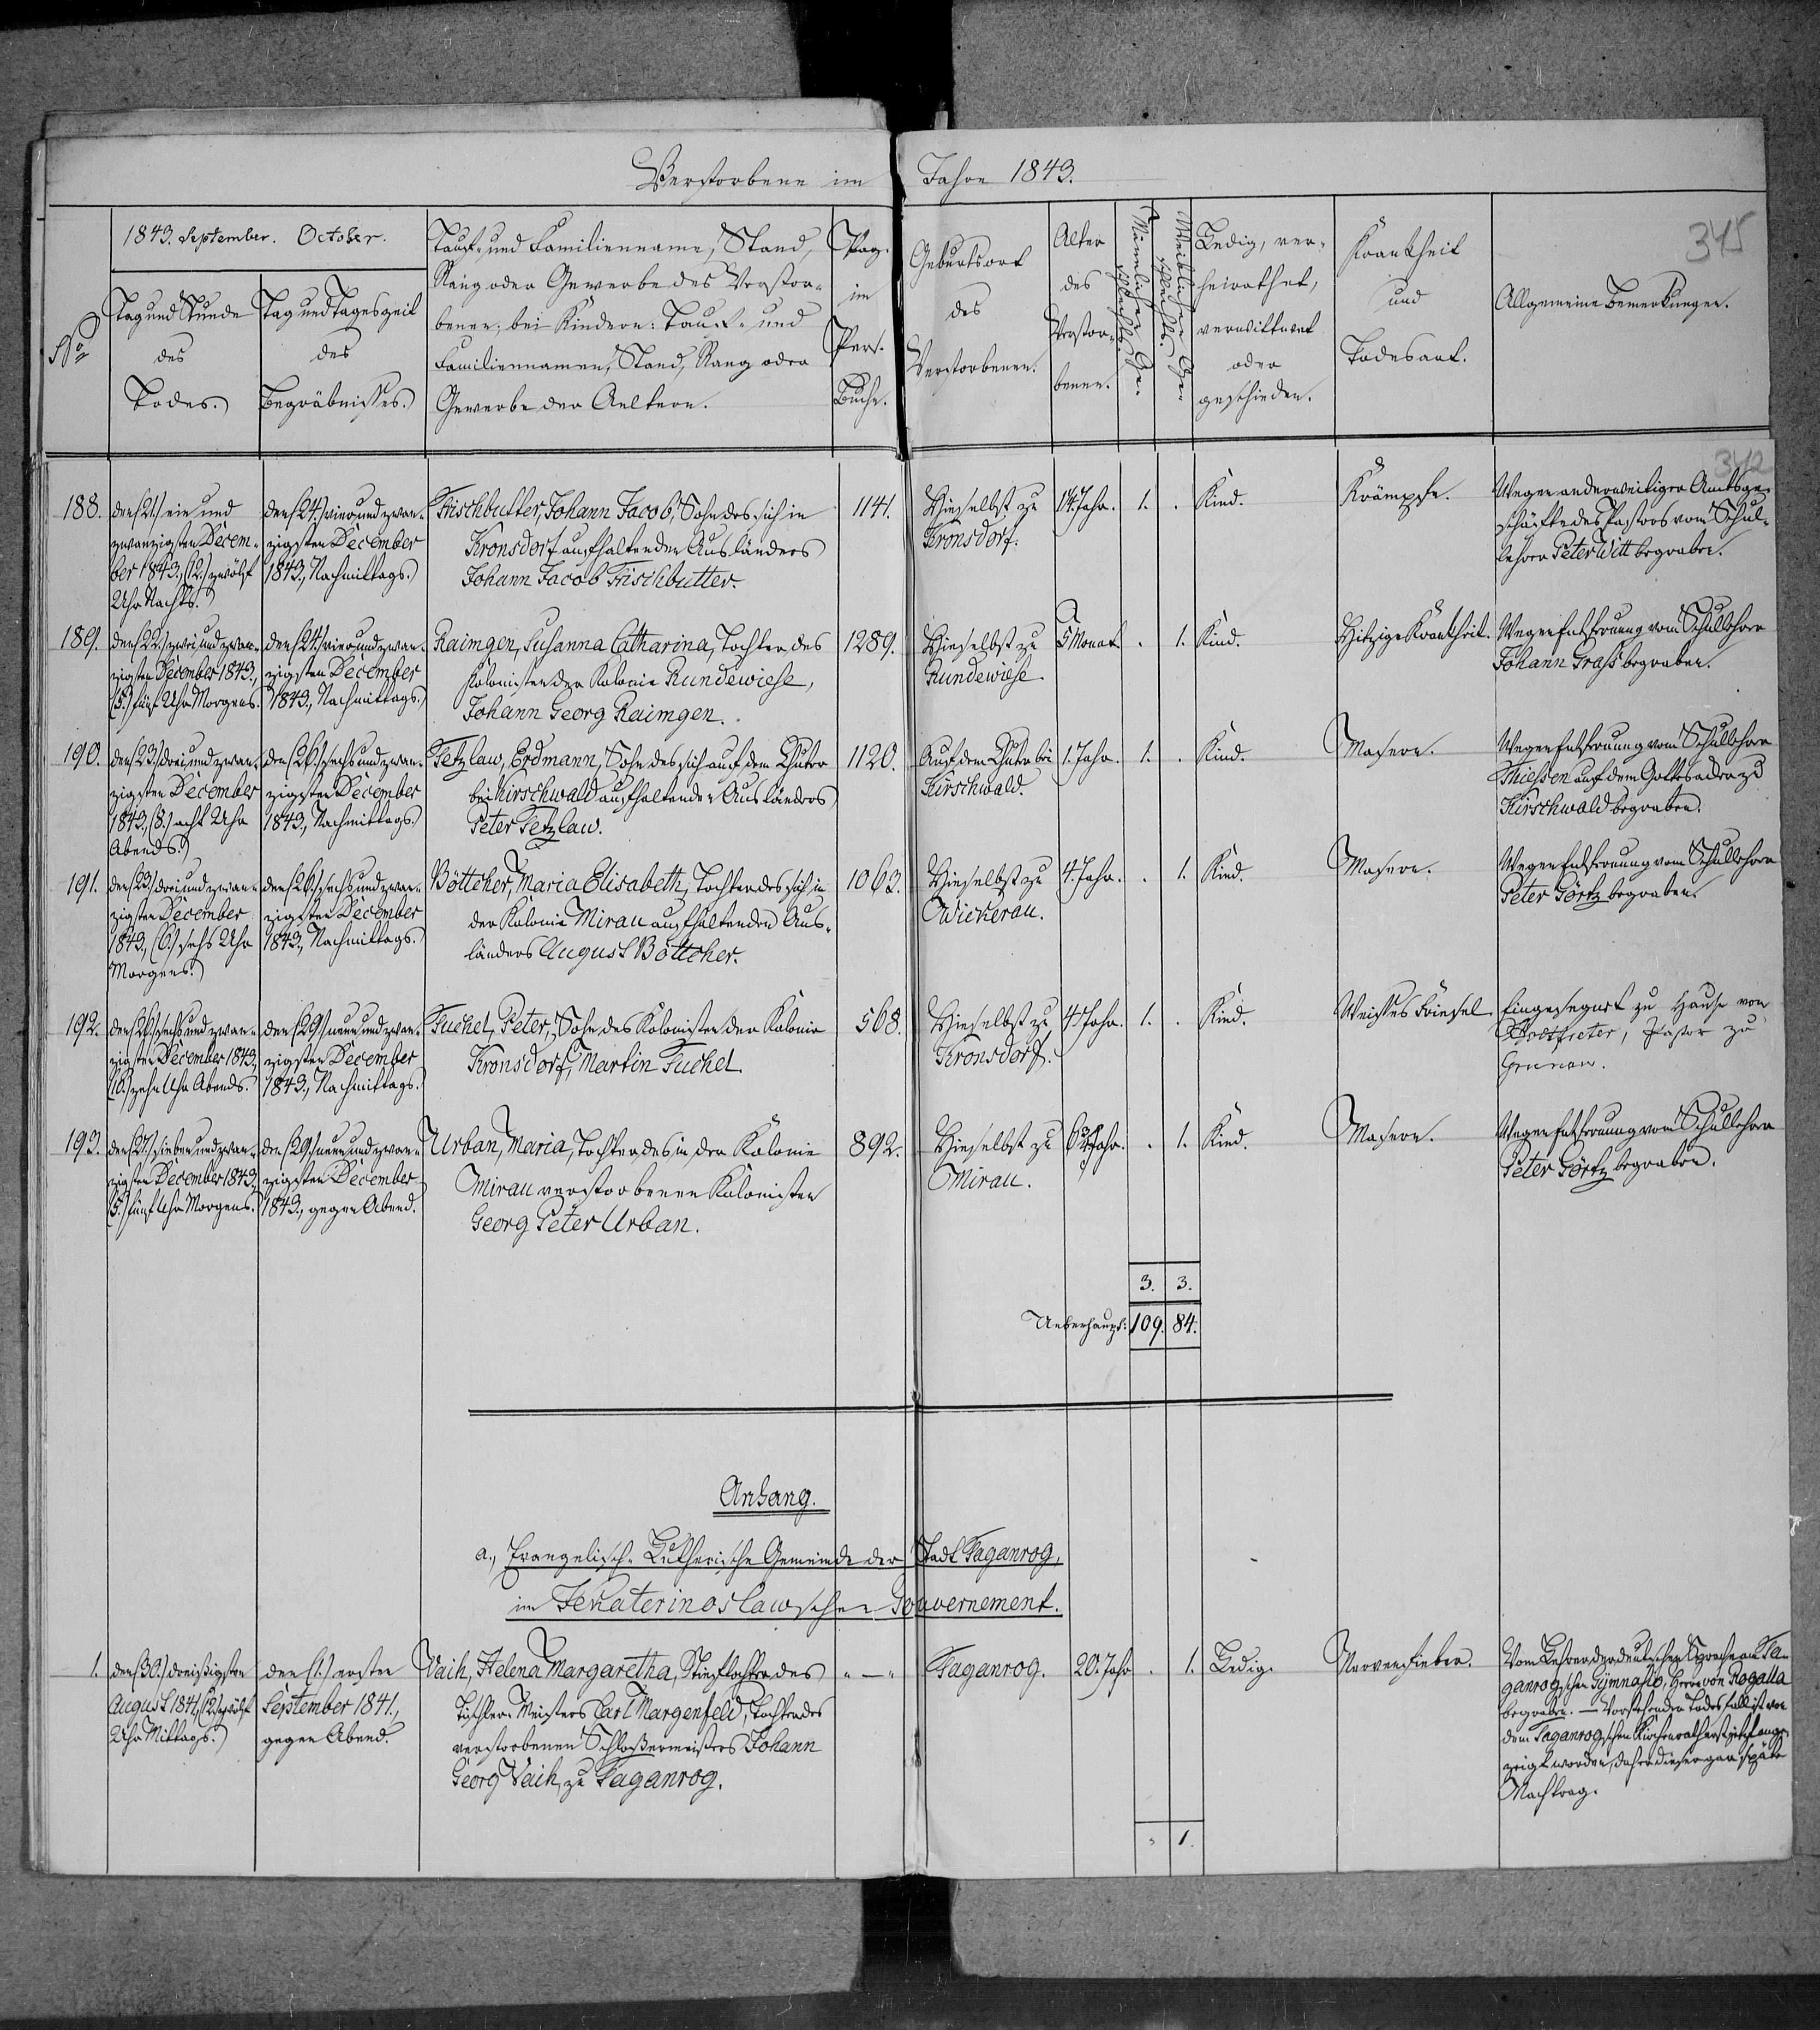 Verstorbene im Jahre 1843.
345
1843. September. October.
No
Tag und Stunde
des
Todes.
Tag und Tageszeit
des
Begräbnisses.
Tauf- und Familienname, Stand,
Rang oder Gewerbe des Verstor-
benen; bei Kindern: Tauf- und
Familiennamen, Stand, Rang oder
Gewerbe der Aeltern.
Pag.
im
Pers.
Buche.
Geburtsort
des
Verstorbenen.
Alter
des
Verstor-
benen.
Männlichen Ge-
schlechts.
Weiblichen Ge-
schlechts.
Ledig, ver-
heirathet,
verwittwet
oder
geschieden.
Krankheit
und
Todesart.
Allgemeine Bemerkungen.
342
188.
den (21.) ein und
zwanzigsten Decem-
ber 1843., (12.) zwölf
Uhr Nachts.
den (24.) vier und zwan-
zigsten December
1843., Nachmittags.
Frischbutter, Johann Jacob, Sohn des sich in
Kronsdorf aufhaltenden Ausländers
Johann Jacob Frischbutter.
1141.
Hieselbst zu
Kronsdorf.
1¼ Jahr.
1.
.
Kind.
Krämpfe.
Wegen anderweitiger Amtsge-
schäfte des Pastors vom Schul-
lehrer Peter Witt begraben.
189.
den (22.) zwei und zwan-
zigsten December 1843.,
(5.) fünf Uhr Morgens.
den (24.) vier und zwan-
zigsten December
1843., Nachmittags.
Raimgen, Susanna Catharina, Tochter des
Kolonisten der Kolonie Rundewiese,
Johann Georg Raimgen.
1289.
Hieselbst zu
Rundewiese.
5 Monat.
.
1.
Kind.
Hitzige Krankheit.
Wegen Entfernung vom Schullehrer
Johann Graß begraben.
190.
den (23.) drei und zwan-
zigsten December
1843., (8.) acht Uhr
Abends.
den (26.) sechs und zwan-
zigsten December
1843., Nachmittags.
Tetzlaw, Erdmann, Sohn des sich auf dem Chuter
bei Kirschwald aufhaltenden Ausländers
Peter Tetzlaw.
1120.
Auf dem Chuter bei
Kirschwald.
1. Jahr.
1.
.
Kind.
Masern.
Wegen Entfernung vom Schullehrer
Thießen auf dem Gottesacker zu
Kirschwald begraben.
191.
den (23.) drei und zwan-
zigsten December
1843., (6.) sechs Uhr
Morgens.
den (26.) sechs und zwan-
zigsten December
1843., Nachmittags.
Böttcher, Maria Elisabeth, Tochter des sich in
der Kolonie Mirau aufhaltenden Aus-
länders August Böttcher.
1063.
Hieselbst zu
Wickerau.
4. Jahr.
.
1.
Kind.
Masern.
Wegen Entfernung vom Schullehrer
Peter Görtz begraben.
192.
den (26.) sechs und zwan-
zigsten December 1843.,
(10.) zehn Uhr Abends.
den (29.) neun und zwan-
zigsten December
1843., Nachmittags.
Tuchel, Peter, Sohn des Kolonisten der Kolonie
Kronsdorf, Martin Tuchel.
568.
Hieselbst zu
Kronsdorf.
4 Jahr.
1.
.
Kind.
Weisses Friesel.
Eingesegnet zu Hause von
Holtfreter, Pastor zu
Grunau.
193.
den (27.) sieben und zwan-
zigsten December 1843.,
(5.) fünf Uhr Morgens.
den (29.) neun und zwan-
zigsten December
1843., gegen Abend.
Urban, Maria, Tochter des in der Kolonie
Mirau verstorbenen Kolonisten
Georg Peter Urban.
892.
Hieselbst zu
Mirau.
6¾ Jahr.
.
1.
Kind.
Masern.
Wegen Entfernung vom Schullehrer
Peter Görtz begraben.
3. 3.
Ueberhaupt: 109. 84.
Anhang.
a., Evangelisch-Lutherische Gemeinde der Stadt Taganrog,
im Jekaterinoslawschen Gouvernement.
1.
den (30.) dreißigsten
August 1841., (12.) zwölf
Uhr Mittags.
den (1.) ersten
September 1841.,
gegen Abend.
Vaih, Helena Margaretha, Stieftochter des
Tischler-Meisters Carl Margenfeld, Tochter des
verstorbenen Schloßermeisters Johann
Georg Vaih, zu Taganrog.
" — "
Taganrog.
20. Jahr
.
1.
Ledig.
Nervenfieber.
Vom Lehrer der deutschen Sprache am Ta-
ganrogschen Gymnasio, Herrn von Rogalla
begraben. — Vorstehender Todesfall ist von
dem Taganrogschen Kirchenrathe erst jetzt ange-
zeigt worden, daher dieser gar späte
Nachtrag.
" 1.